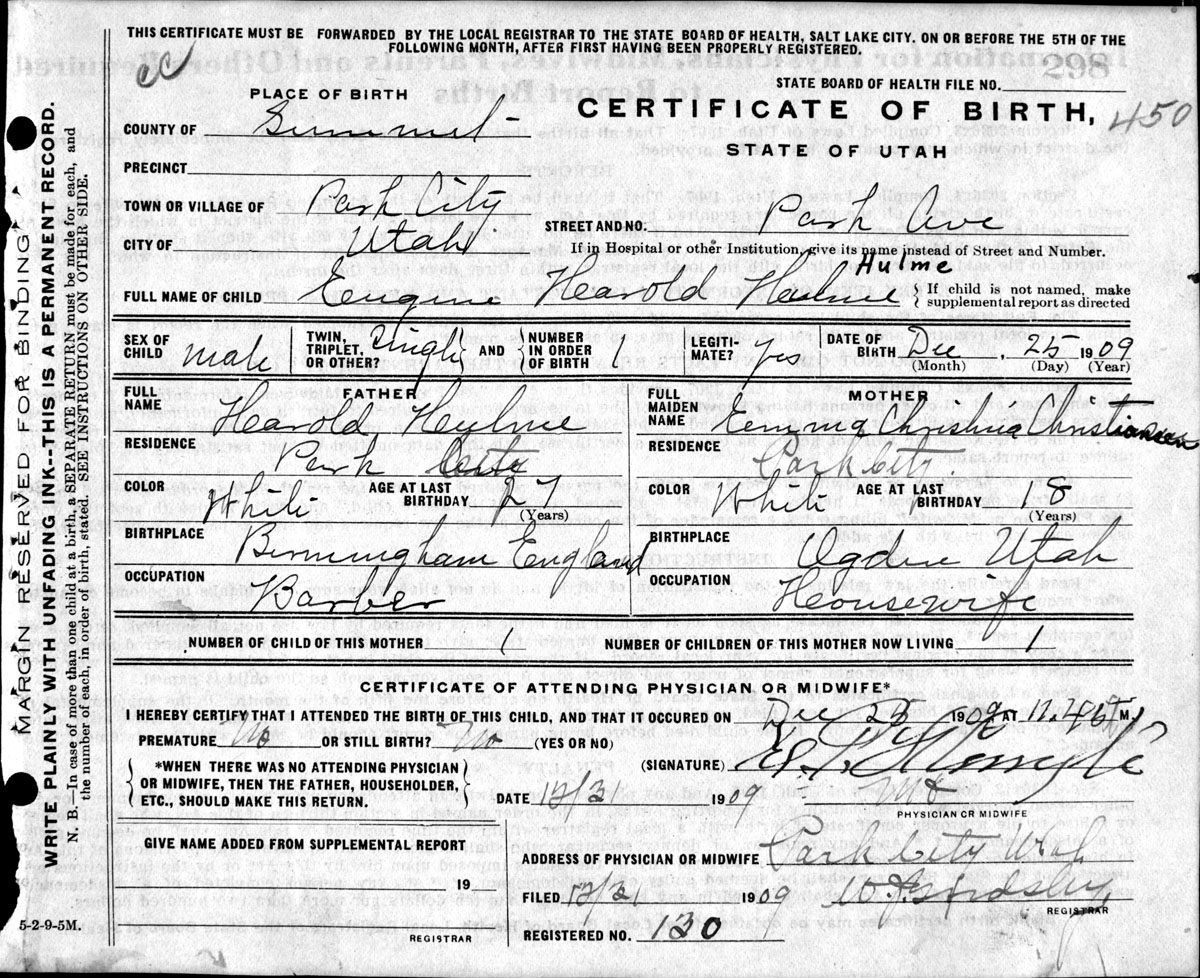 THIS CERTIFICATE MUST BE FORWARDED BY THE LOCAL REGISTRAR TO THE STATE BOARD OF HEALTH, SALT LAKE CITY, ON OR BEFORE THE 5TH OF THE
FOLLOWING MONTH, AFTER FIRST HAVING BEEN PROPERLY REGISTERED.
298
STATE BOARD OF HEALTH FILE NO.
PLACE OF BIRTH
CERTIFICATE OF BIRTH, 450
COUNTY OF Summit
STATE OF UTAH
PRECINCT
TOWN OR VILLAGE OF Park City
STREET AND NO. Park Ave
CITY OF Utah
If in Hospital or other Institution, give its name instead of Street and Number.
Hulme
FULL NAME OF CHILD Eugine Hearold Hulme { If child is not named, make
supplemental report as directed
SEX OF CHILD Male
TWIN, TRIPLET, OR OTHER? Single AND { NUMBER IN ORDER OF BIRTH 1
LEGITI-MATE? Yes
DATE OF BIRTH Dec 25 1909
(Month) (Day) (Year)
FATHER
FULL NAME Hearold Hulme
MOTHER
FULL MAIDEN NAME Emma Christina Christiansen
RESIDENCE Park City
RESIDENCE Park City.
COLOR White AGE AT LAST BIRTHDAY 27
(Years)
COLOR White AGE AT LAST BIRTHDAY 18
(Years)
BIRTHPLACE Birmingham England
BIRTHPLACE Ogden Utah
OCCUPATION Barber
OCCUPATION Housewife
NUMBER OF CHILD OF THIS MOTHER 1
NUMBER OF CHILDREN OF THIS MOTHER NOW LIVING 1
CERTIFICATE OF ATTENDING PHYSICIAN OR MIDWIFE*
I HEREBY CERTIFY THAT I ATTENDED THE BIRTH OF THIS CHILD, AND THAT IT OCCURED ON Dec 25 1909 AT 11.45 M
PREMATURE No OR STILL BIRTH? No (YES OR NO)
(SIGNATURE)
{ *WHEN THERE WAS NO ATTENDING PHYSICIAN
OR MIDWIFE, THEN THE FATHER, HOUSEHOLDER,
ETC., SHOULD MAKE THIS RETURN. }
DATE 12/31 1909 MD
PHYSICIAN OR MIDWIFE
GIVE NAME ADDED FROM SUPPLEMENTAL REPORT
ADDRESS OF PHYSICIAN OR MIDWIFE Park City Utah
19
FILED 12/31 1909
REGISTRAR
REGISTRAR
REGISTERED NO. 130
5-2-9-5M.
MARGIN RESERVED FOR BINDING
WRITE PLAINLY WITH UNFADING INK--THIS IS A PERMANENT RECORD.
N. B.—In case of more than one child at a birth, a SEPARATE RETURN must be made for each, and
the number of each, in order of birth, stated. SEE INSTRUCTIONS ON OTHER SIDE.